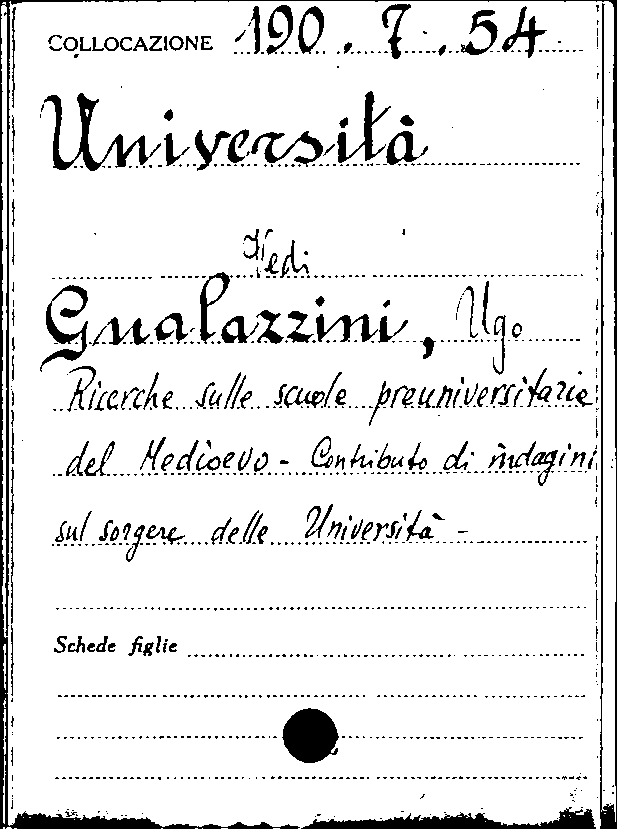 COLLOCAZIONE 190.7.54
Università
Vedi
Gualazzini, Ugo
Ricerche sulle scuole preuniversitarie
del Medioevo - Contributo di indagini
sul sorgere delle Università -
Schede figlie